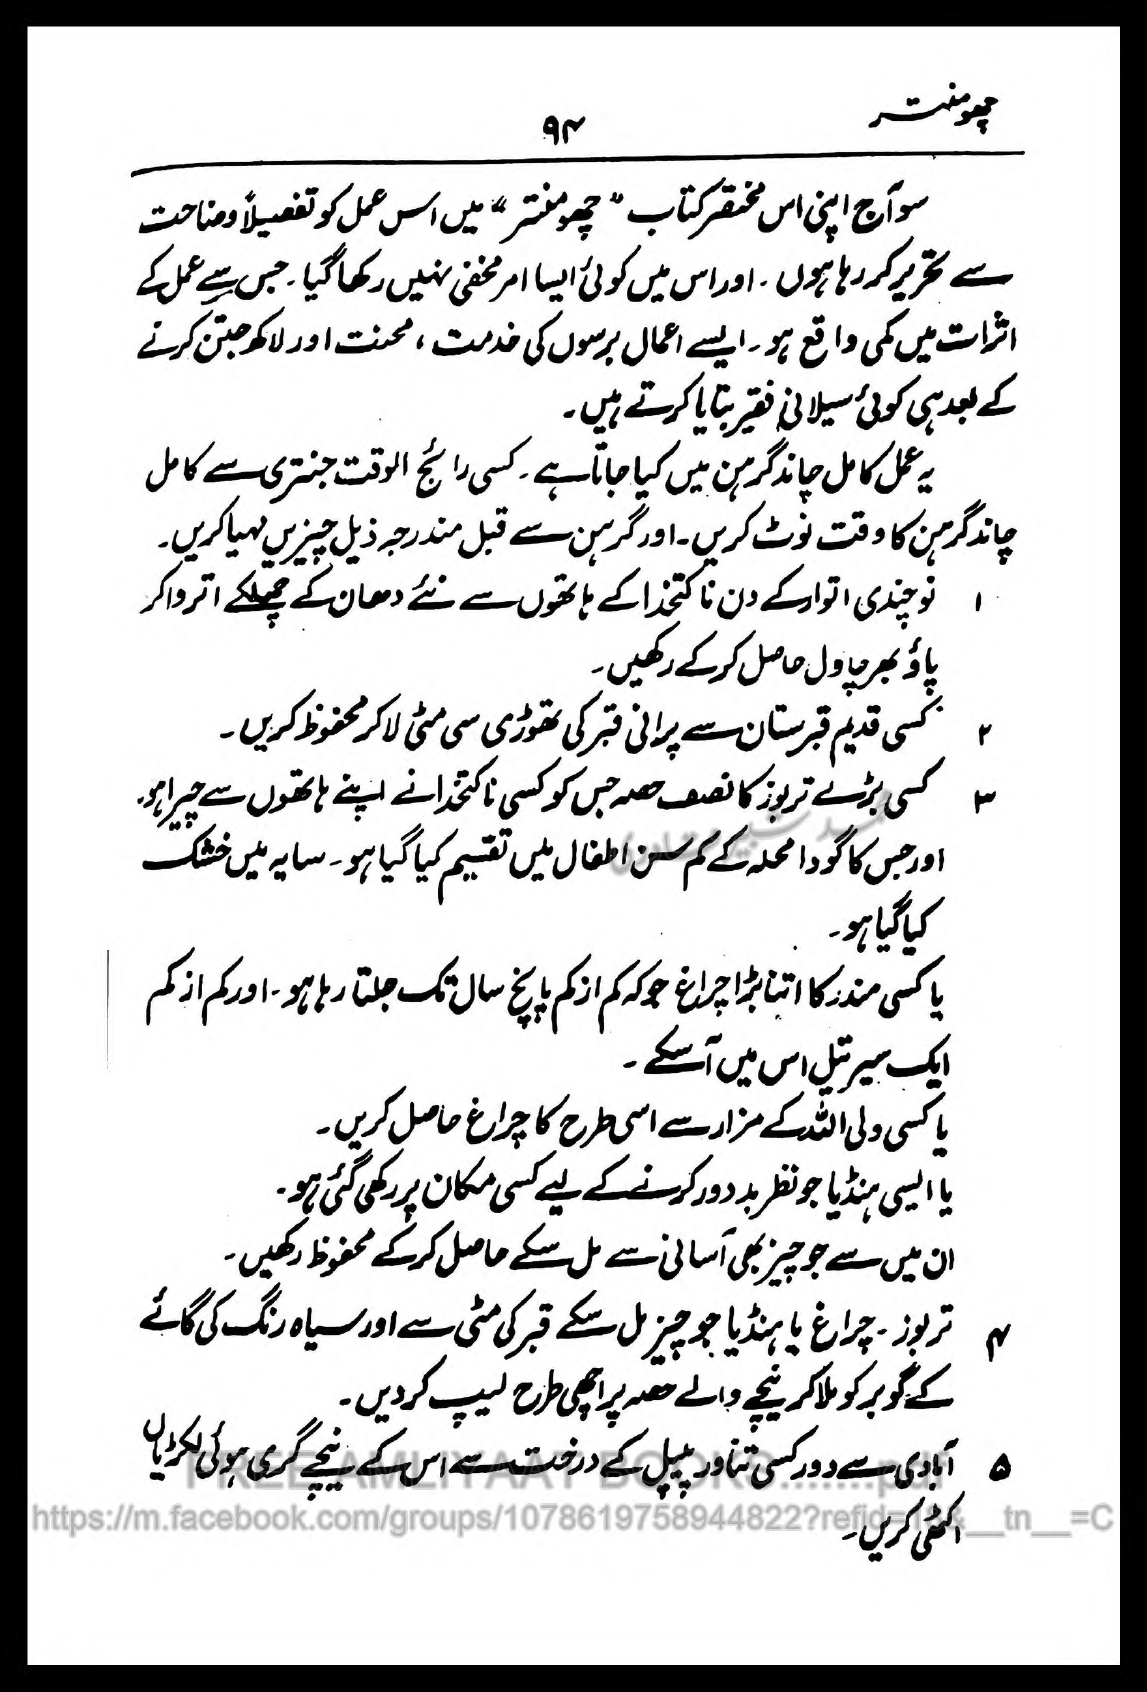 چھومنتر
۹۴
سو آج اپنی اس مختصر کتاب "چھومنتر" میں اس عمل کو تفصیلاً وضاحت
سے تحریر کر رہا ہوں ۔ اور اس میں کوئی ایسا امر مخفی نہیں رکھا گیا ۔ جس سے عمل کے
اثرات میں کمی واقع ہو ۔ ایسے اعمال برسوں کی خدمت ، محنت اور لاکھ جتن کرنے
کے بعد ہی کوئی سیلانی فقیر بتایا کرتے ہیں ۔
یہ عمل کامل چاند گرہن میں کیا جاتا ہے ۔ کسی رائج الوقت جنتری سے کامل
چاند گرہن کا وقت نوٹ کریں ۔ اور گرہن سے قبل مندرجہ ذیل چیزیں مہیا کریں ۔
۱ نوچندی اتوار کے دن ناکتخدا کے ہاتھوں سے نئے دھان کے چھلکے اتروا کر
پاؤ بھر چاول حاصل کر کے رکھیں ۔
۲ کسی قدیم قبرستان سے پرانی قبر کی تھوڑی سی مٹی لا کر محفوظ کریں ۔
۳ کسی بڑے تربوز کا نصف حصہ جس کو کسی ناکتخدا نے اپنے ہاتھوں سے چیرا ہو ۔
اور جس کا گودا محلہ کے کم سن اطفال میں تقسیم کیا گیا ہو ۔ سایہ میں خشک
کیا گیا ہو ۔
یا کسی مندر کا اتنا بڑا چراغ جو کہ کم از کم پانچ سال تک جلتا رہا ہو ۔ اور کم از کم
ایک سیر تیل اس میں آ سکے ۔
یا کسی ولی اللہ کے مزار سے اسی طرح کا چراغ حاصل کریں ۔
یا ایسی ہنڈیا جو نظر بد دور کرنے کے لیے کسی مکان پر رکھی گئی ہو ۔
ان میں سے جو چیز بھی آسانی سے مل سکے حاصل کر کے محفوظ رکھیں ۔
۴ تربوز ۔ چراغ یا ہنڈیا جو چیز مل سکے قبر کی مٹی سے اور سیاہ رنگ کی گائے
کے گوبر کو ملا کر نیچے والے حصہ پر اچھی طرح لیپ کر دیں ۔
۵ آبادی سے دور کسی تناور پیپل کے درخت سے اس کے نیچے گری ہوئی لکڑیاں
FREE AMLIYAAT BOOKS.......pdf
https://m.facebook.com/groups/1078619758944822?refid=18&__tn__=C
اکٹھی کریں ۔